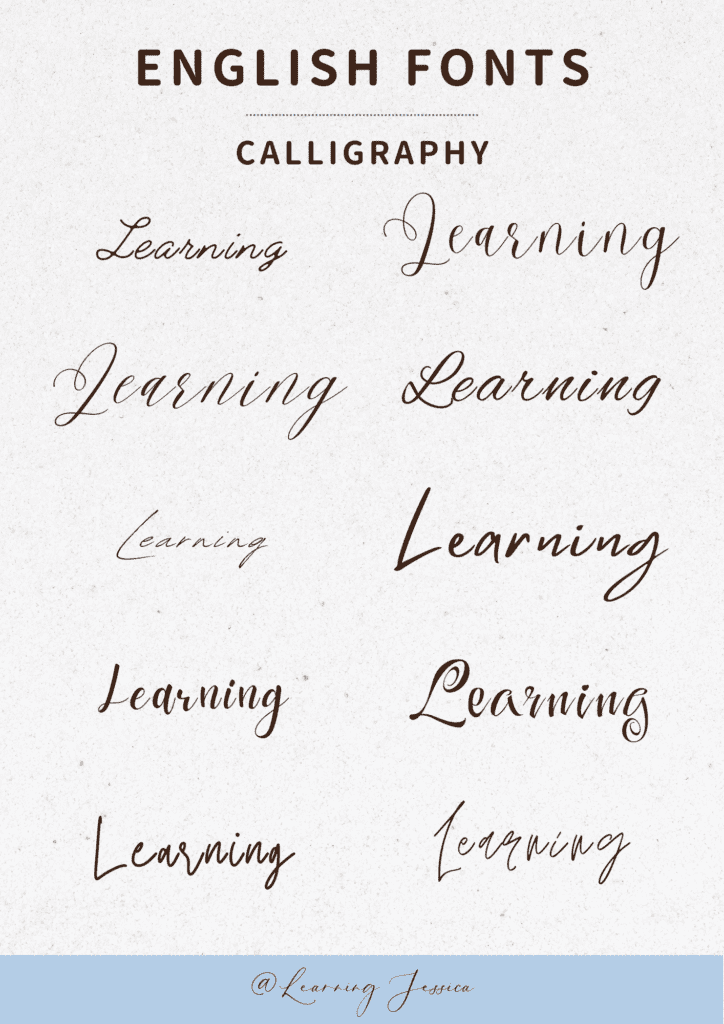 ENGLISH FONTS
CALLIGRAPHY
Learning Learning
Learning Learning
Learning Learning
Learning Learning
Learning Learning
@Learning Jessica